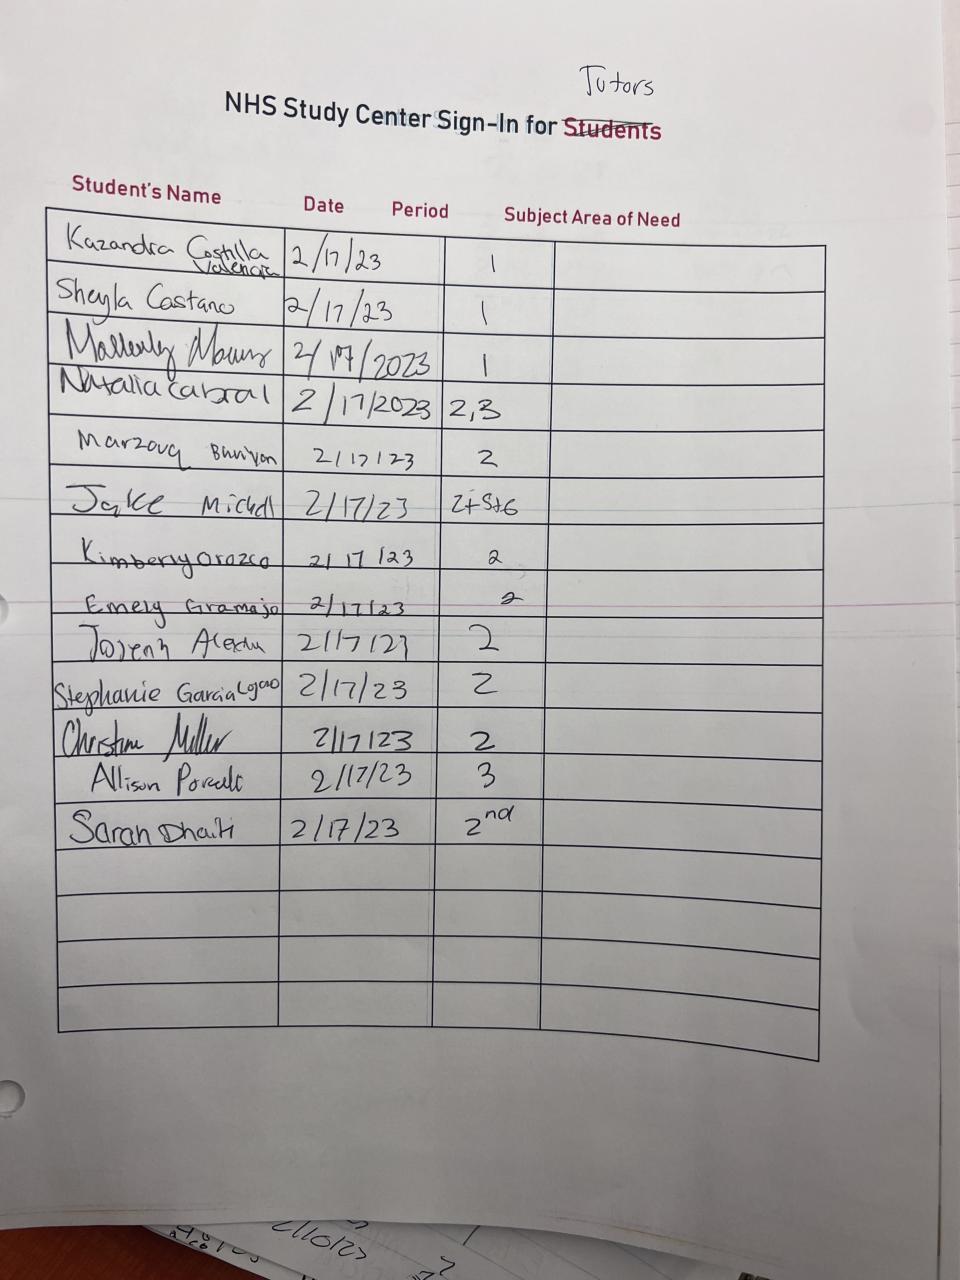 Tutors
NHS Study Center Sign-In for Students
Student's Name Date Period Subject Area of Need
Kazandra Costilla Valencia 2/17/23 1
Sheyla Castano 2/17/23 1
2/17/2023 1
Natalia Cabral 2/17/2023 2,3
Marzouq 2/17/23 2
Jake Michell 2/17/23 2+5+6
Kimberly Orozco 2/17/23 2
Emely Gramajo 2/17/23 2
Joseph 2/17/23 2
Stephanie Garcia 2/17/23 2
Christine Miller 2/17/23 2
Allison 2/17/23 3
Sarah Dhaiti 2/17/23 2nd
2/10/23